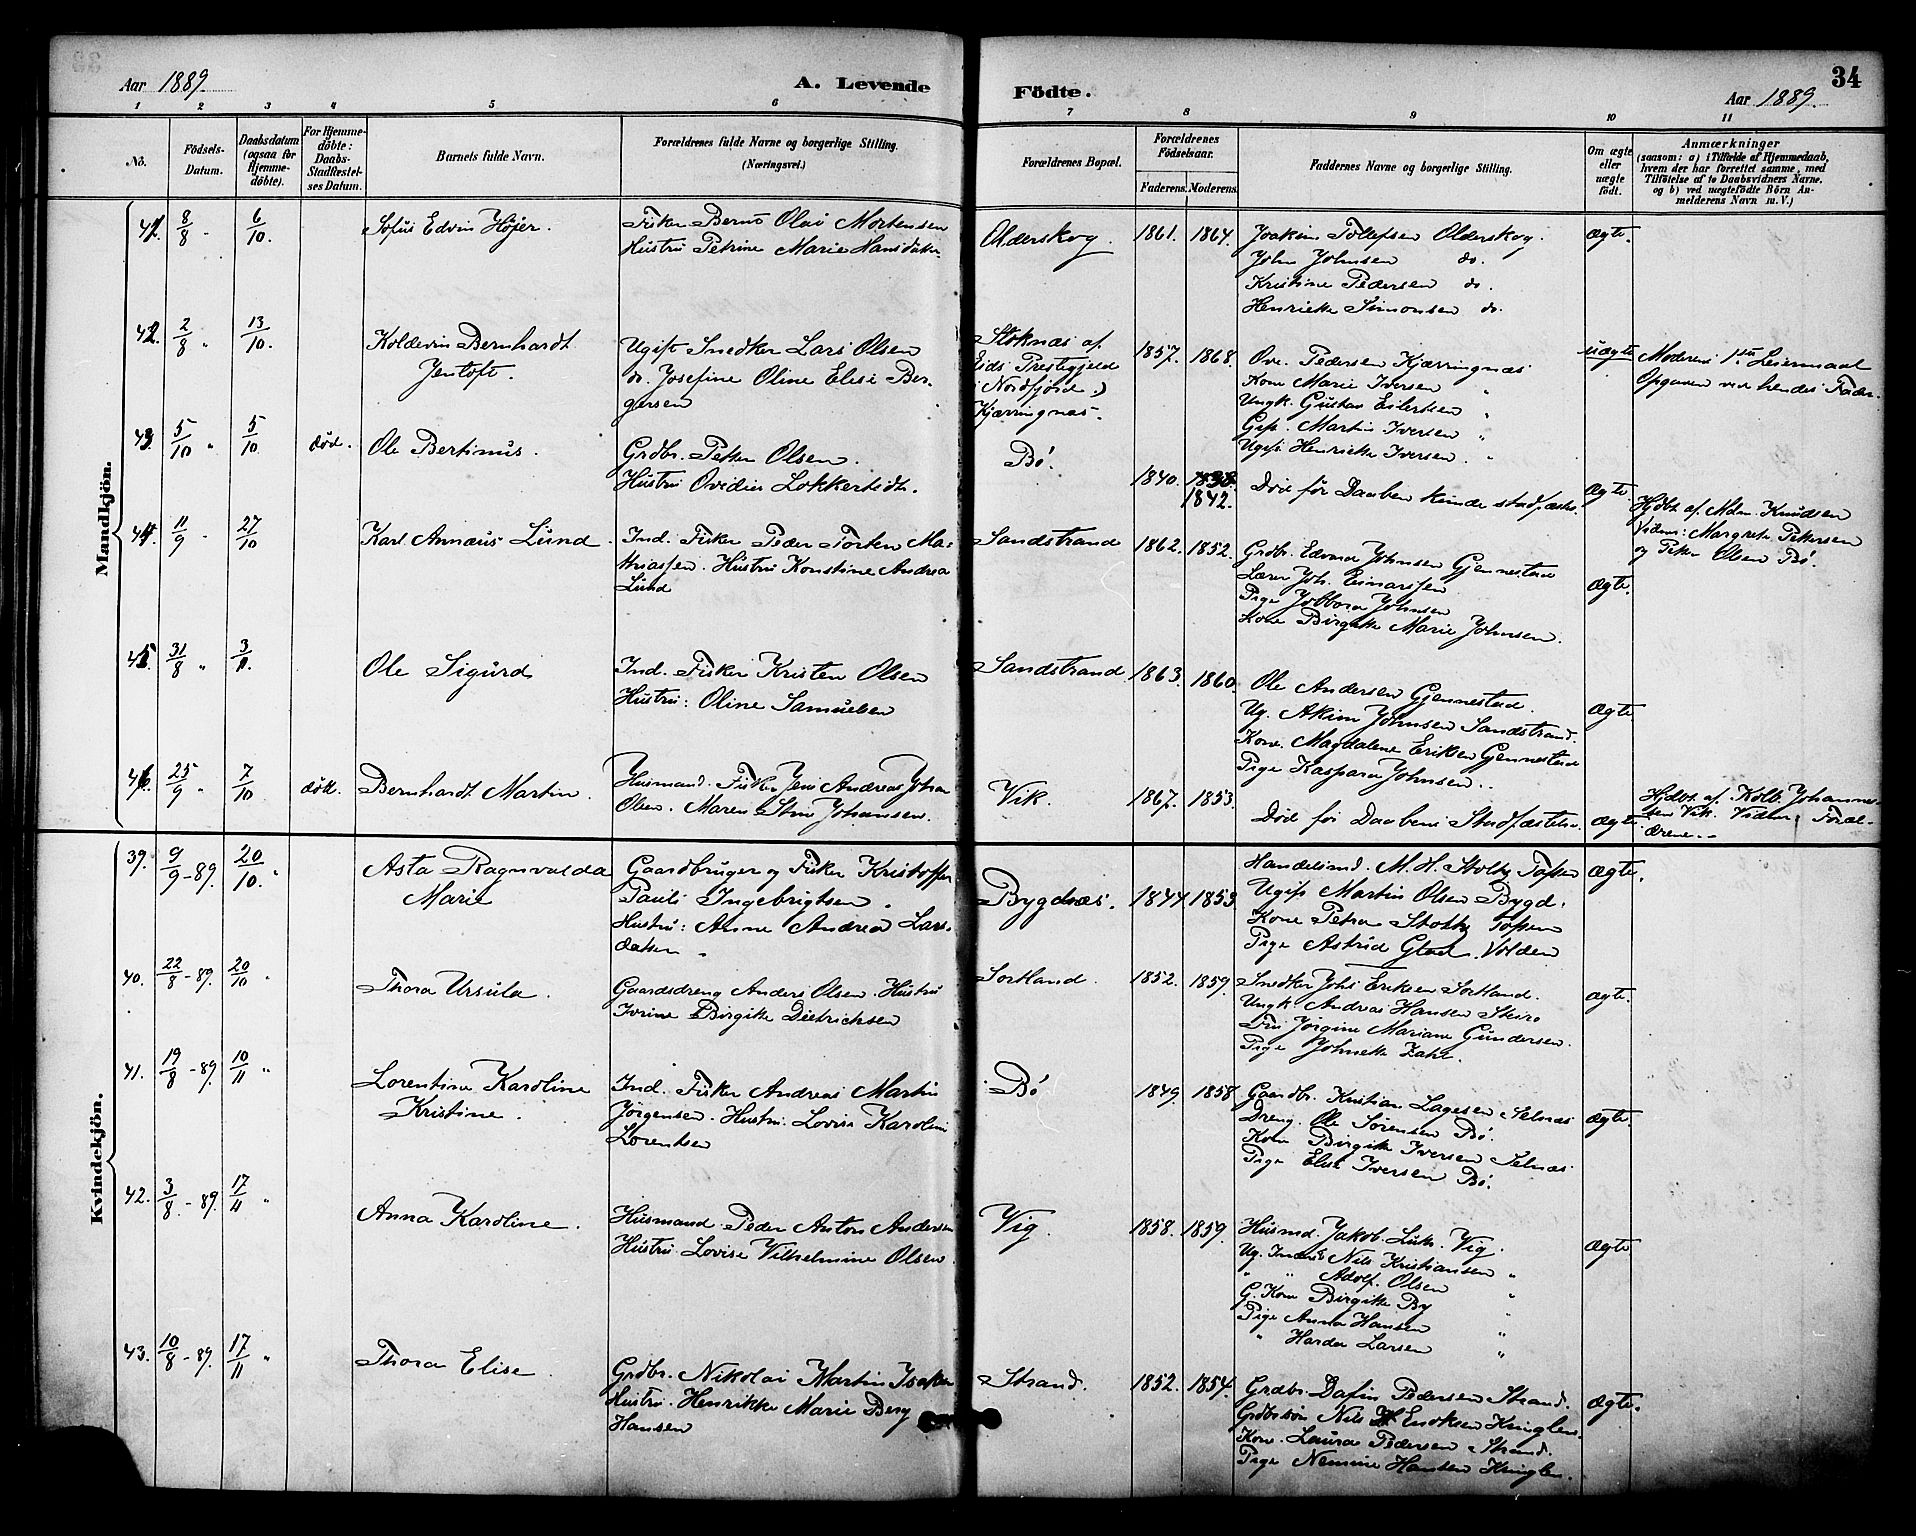 Aar 1889. A. Levende Födte. Aar 1889. 34
1 2 3 4 5 6 7 8 9 10 11
No. Födsels-Datum. Daabsdatum (ogsaa for Hjemmedöbte). For Hjemmedöbte: Daabs-Stadfæstelses Datum. Barnets fulde Navn. Forældrenes fulde Navne og borgerlige Stilling. (Næringsvei.) Forældrenes Bopæl. Forældrenes Födselsaar. Faderens. Moderens. Faddernes Navne og borgerlige Stilling. Om ægte eller uægte født.
Anmærkninger
(saasom: a) i Tilfælde af Hjemmedaab,
hvem der har forrettet samme, med
Tilföielse af to Daabsvidners Navne,
og b) ved uægtefödte Börn An-
melderens Navn m. V.)
Mandkjön.
41. 8/8 6/10. Sofus Edvin Höjer. Fisker Bernt Olai Mortensen
Hustru Petrine Marie Hansdatter
Olderskog. 1861. 1864. Joakim Tollefsen Olderskog. Ægte.
John Johnsen do.
Kristine Pedersen do.
Henriette Simonsen do.
42. 2/8 " 13/10. Koldevin Bernhardt
Jentoft.
Ugift Snedker Lars Olsen
do. Josefine Oline Elise Ber-
gersen
Stoknæs af
Eids Prestegjeld
i Nordfjord,)
Kjærringnæs.
1857. 1868. Ove Pedersen Kjærringnæs Uægte
Kone Marie Iversen "
Ungk. Gustav Eilertsen "
Gift Martin Iversen "
Ugift Henriette Iversen "
Moderens 1ste Leiermaal
Opgaven ved hendes Fader.
43. 5/10 " 5/10 död. Ole Bertinus. Grdbr. Petter Olsen.
Hustru Ovedia Lokkertsdt.
Bö. 1840. 1838.
1842.
Död för Daaben kunde stadfæstes. Ægte
Hjdbt. af Mdm. Knudsen
Vidner: Margrete Pettersen
og Peter Olsen Bö.
44. 11/9 " 27/10 Karl Annæus Lund. Ind. Fisker Peder Torsten Ma-
thiassen. Hustru Konstine Andrea
Lund
Sandstrand 1862. 1852. Grdbr. Edvard Johnsen Gjennestad
Lærer Joh. Eimarssen
Pige Jobbora Johnsen
Kone Birgitte Marie Johnsen.
Ægte.
45. 31/8 " Ole Sigurd Ind. Fisker Kristen Olsen
Hustru: Oline Samuelsen
Sandstrand 1863. 1860. Ole Andersen Gjennestad.
Ug. Akim Johnsen Sandstrand.
Kone Magdalene Eriksen Gjennestad
Pige Kaspara Johnsen.
Ægte
46. 25/9 " 7/10 död. Bernhardt Martin. Husmand. Fisker Jens Andreas Johan
Olsen. Maren Stine Johansen.
Vik. 1867. 1853. Död för Daabens Stadfæstelse. Ægte
Hjdbt. af Kolb. Johanne-
sen Vik. Vidner: Foræl-
drene.
Kvindekjön.
39. 9/9-89. 20/10. " Asta Ragnvalda
Marie
Gaardbruger og Fisker Kristoffer
Pauli Ingebrigtsen.
Hustru: Anne Andrea Lars-
datter.
Bygdnæs. 1844 1853 Handelsmd. M. H. Stoltz Ægte.
Ugift Martin Olsen Bygd.
Kone Petra Stoltz
Pige Astrid Glad. Volden
40. 22/8-89. 20/10 " Thora Ursula. Gaardsdreng Anders Olsen. Hustru
Ivrine Birgitte Dietrichsen
Sortland. 1852. 1859. Snedker Johs Eriksen Sortland.
Ungk. Andreas Hansen Steiro
Fru Jörgine Mariane Gundersen.
Pige Johnette Zahl.
Ægte.
41. 19/8-89. 10/11 " Lorentine Karoline
Kristine.
Ind. Fisker Andreas Martin
Jörgensen. Hustru Lovise Karoline
Lorentsen
Bö 1849 1858 Gaardbr. Kristian Lagesen Selnæs
Dreng Ole Sörensen Bö.
Kone Birgitte Iversen Selnæs
Pige Elise Iversen Bö.
Ægte.
42. 3/8-89. 17/11 " Anna Karoline. Husmand Peder Anton Andersen
Hustru Lovise Vilhelmine Olsen.
Vig. 1858. 1859. Husmd. Jakob Luk. Vig.
Ug. Nils Kristiansen "
" " Adolf Olsen "
G. Kone Birgitte By "
Pige Anna Hansen "
" Harda Larsen "
Ægte
43. 10/8-89. 17/11 " Thora Elise. Grdbr. Nikolai Martin Isaksen
Hustru Henrikke Marie Berg
Hansen
Strand. 1852. 1854. Grdbr. Dafin Pedersen Strand.
Grdbrsön Nils Endksen Kringlen.
Kone Laura Pedersen Strand.
Pige Nemine Hansen Kringlen.
Ægte.